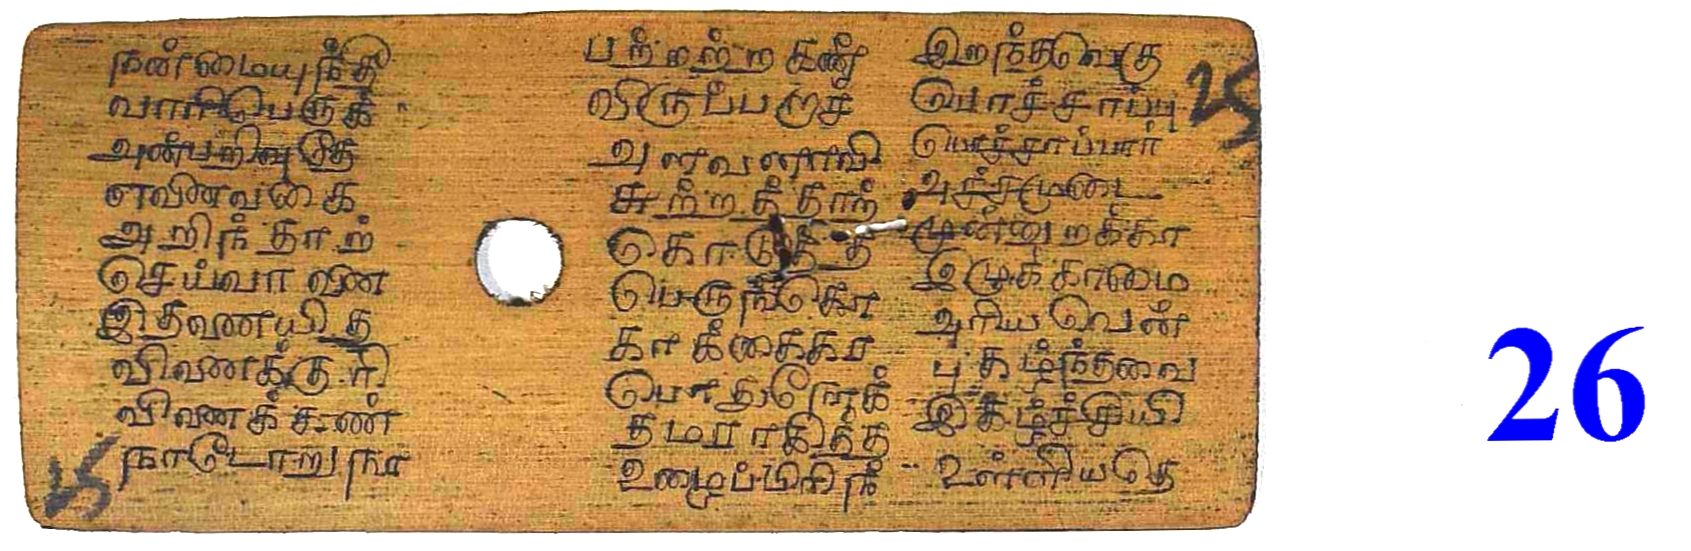 நன்மையுந்தீ
வாரிபெருக்
அன்பறிவுதேத
எவினவகை
அறிந்தாற்
செய்வானை
இதனையித
வினைக்குரி
வினைக்கண்
நாடோறுநா
பற்றற்றகண்
விருப்பறாச்
அளவளாவி
சுற்றத்தாற்
கொடுத்த
பெருங்கொ
காக்கைகர
பொதுநோக்
தமராகித்த
உழைப்பிரிந்
இறந்தவெகு
பொச்சாப்பு
பொச்சாப்பார்
அச்சமுடை
முன்னுறக்கா
இழுக்காமை
அரியவென்
புகழ்ந்தவை
இகழ்ச்சியி
உள்ளியதெ
25
25
26